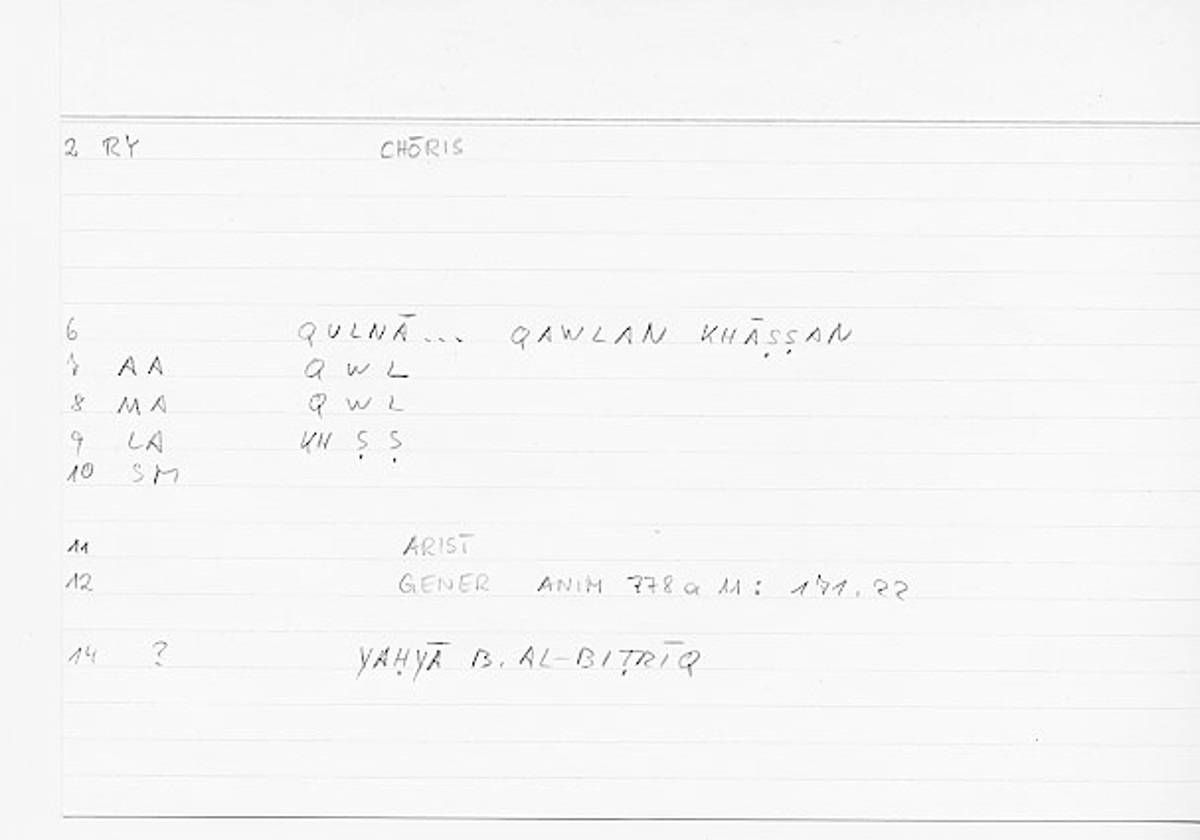 2 RY CHŌRIS
6 QULNĀ... QAWLAN KHĀṢṢAN
7 AA QWL
8 MA QWL
9 LA KH Ṣ Ṣ
10 SM
11 ARIST
12 GENER ANIM 778 a 11: 171.22
14 ? YAḤYĀ B. AL-BIṬRĪQ